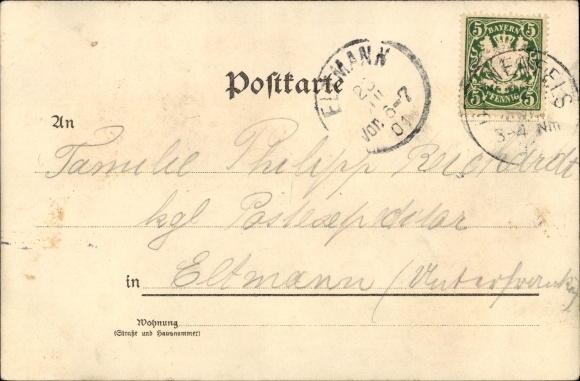 5 BAYERN 5
5 PFENNIG 5
ELTMANN
Vor. 6-7
01
3-4 Nm
Postkarte
An
Familie Philipp Reichardt
kgl Postexpeditor
in Eltmann (Unterfranken)
Wohnung
(Straße und Hausnummer)